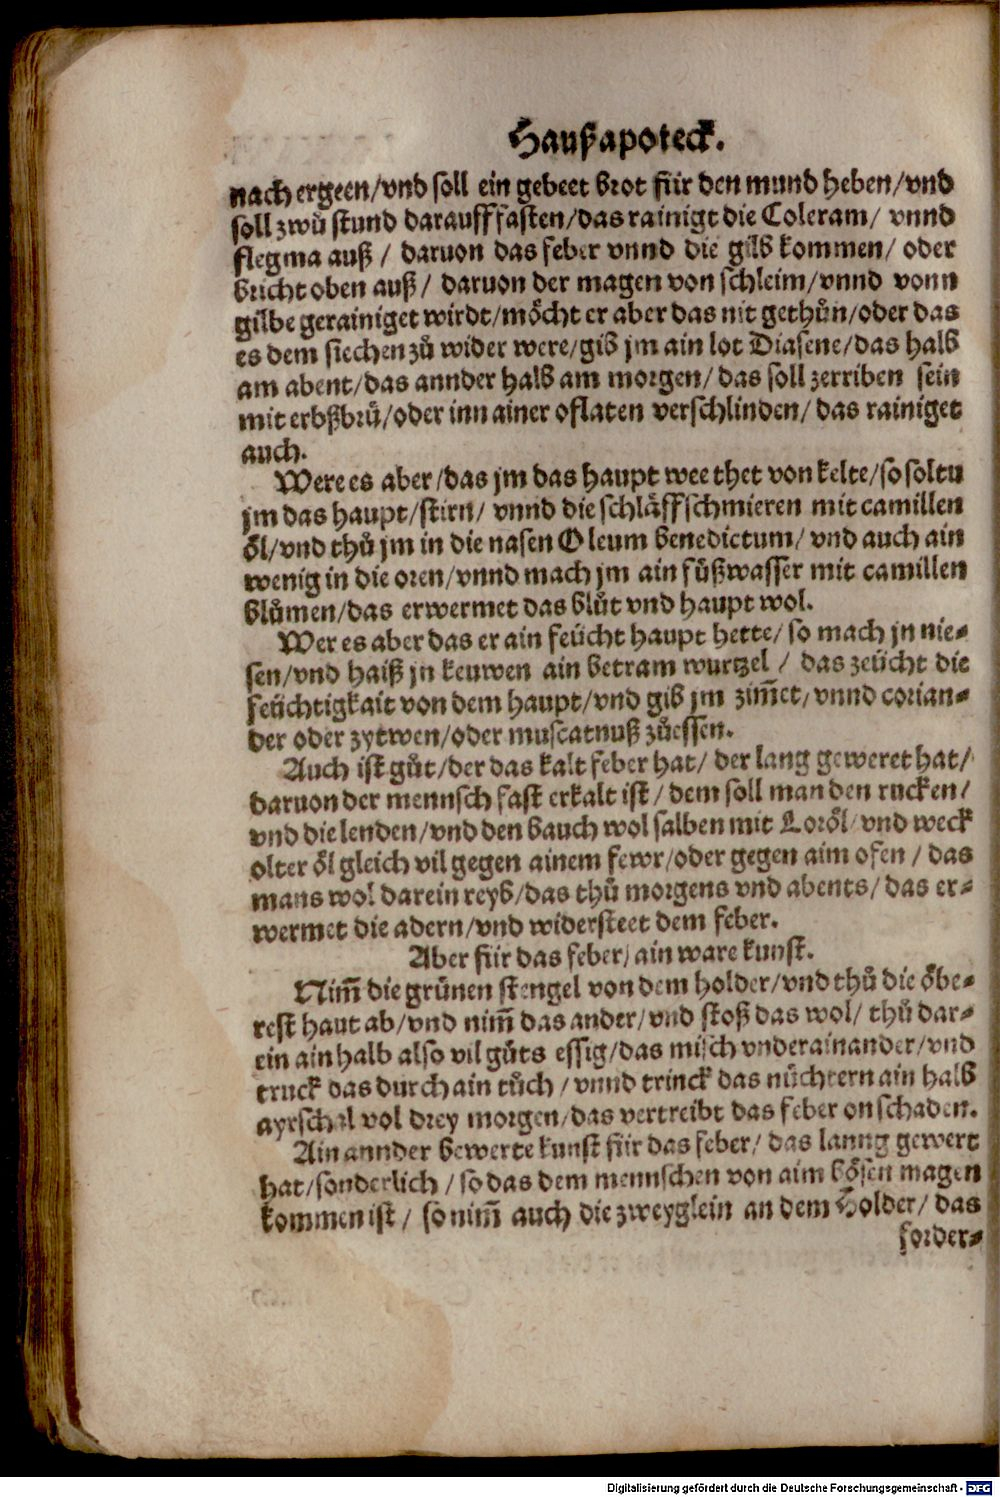 Haußapoteck.
nach ergeen/vnd soll ein gebeet brot für den mund heben/vnd
soll zwů stund darauff fasten/das rainigt die Coleram/ vnnd
flegma auß / daruon das feber vnnd die gilb kommen/ oder
bricht oben auß / daruon der magen von schleim/vnnd vonn
gilbe gerainiget wirdt/möcht er aber das nit gethůn/oder das
es dem siechen zů wider were/gib jm ain lot Diasene/das halb
am abent/das annder halb am morgen/das soll zerriben sein
mit erbßbrů/oder inn ainer oflaten verschlinden/das rainiget
auch.
Were es aber/das jm das haupt wee thet von kelte/so soltu
jm das haupt/stirn/ vnnd die schläff schmieren mit camillen
öl/vnd thů jm in die nasen Oleum benedictum/ vnd auch ain
wenig in die oren/vnnd mach jm ain fůßwasser mit camillen
blůmen/das erwermet das blůt vnd haupt wol.
Wer es aber das er ain feücht haupt hette/ so mach jn nie⸗
sen/vnd haiß jn keuwen ain betram wurtzel / das zeücht die
feüchtigkait von dem haupt/vnd gib jm zim̃et/vnnd corian⸗
der oder zytwen/oder muscatnuß zůessen.
Auch ist gůt/der das kalt feber hat/ der lang geweret hat/
daruon der mennsch fast erkalt ist / dem soll man den rucken/
vnd die lenden/vnd den bauch wol salben mit Loröl/vnd weck
olter öl gleich vil gegen ainem fewr/oder gegen aim ofen / das
mans wol darein reyb/das thů morgens vnd abents/das er⸗
wermet die adern/vnd widersteet dem feber.
Aber für das feber/ain ware kunst.
Nim̃ die grůnen stengel von dem holder/vnd thů die öbe⸗
rest haut ab/vnd nim̃ das ander/vnd stoß das wol/ thů dar⸗
ein ain halb also vil gůts essig/das misch vnderainander/vnd
truck das durch ain tůch / vnnd trinck das nůchtern ain halb
ayrschal vol drey morgen/das vertreibt das feber on schaden.
Ain annder bewerte kunst für das feber/ das lanng gewert
hat/sonderlich / so das dem mennschen von aim bösen magen
kommen ist / so nim̃ auch die zweyglein an dem Holder/ das
forder⸗
Digitalisierung gefördert durch die Deutsche Forschungsgemeinschaft - DFG